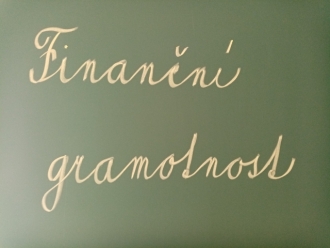 Finanční
gramotnost